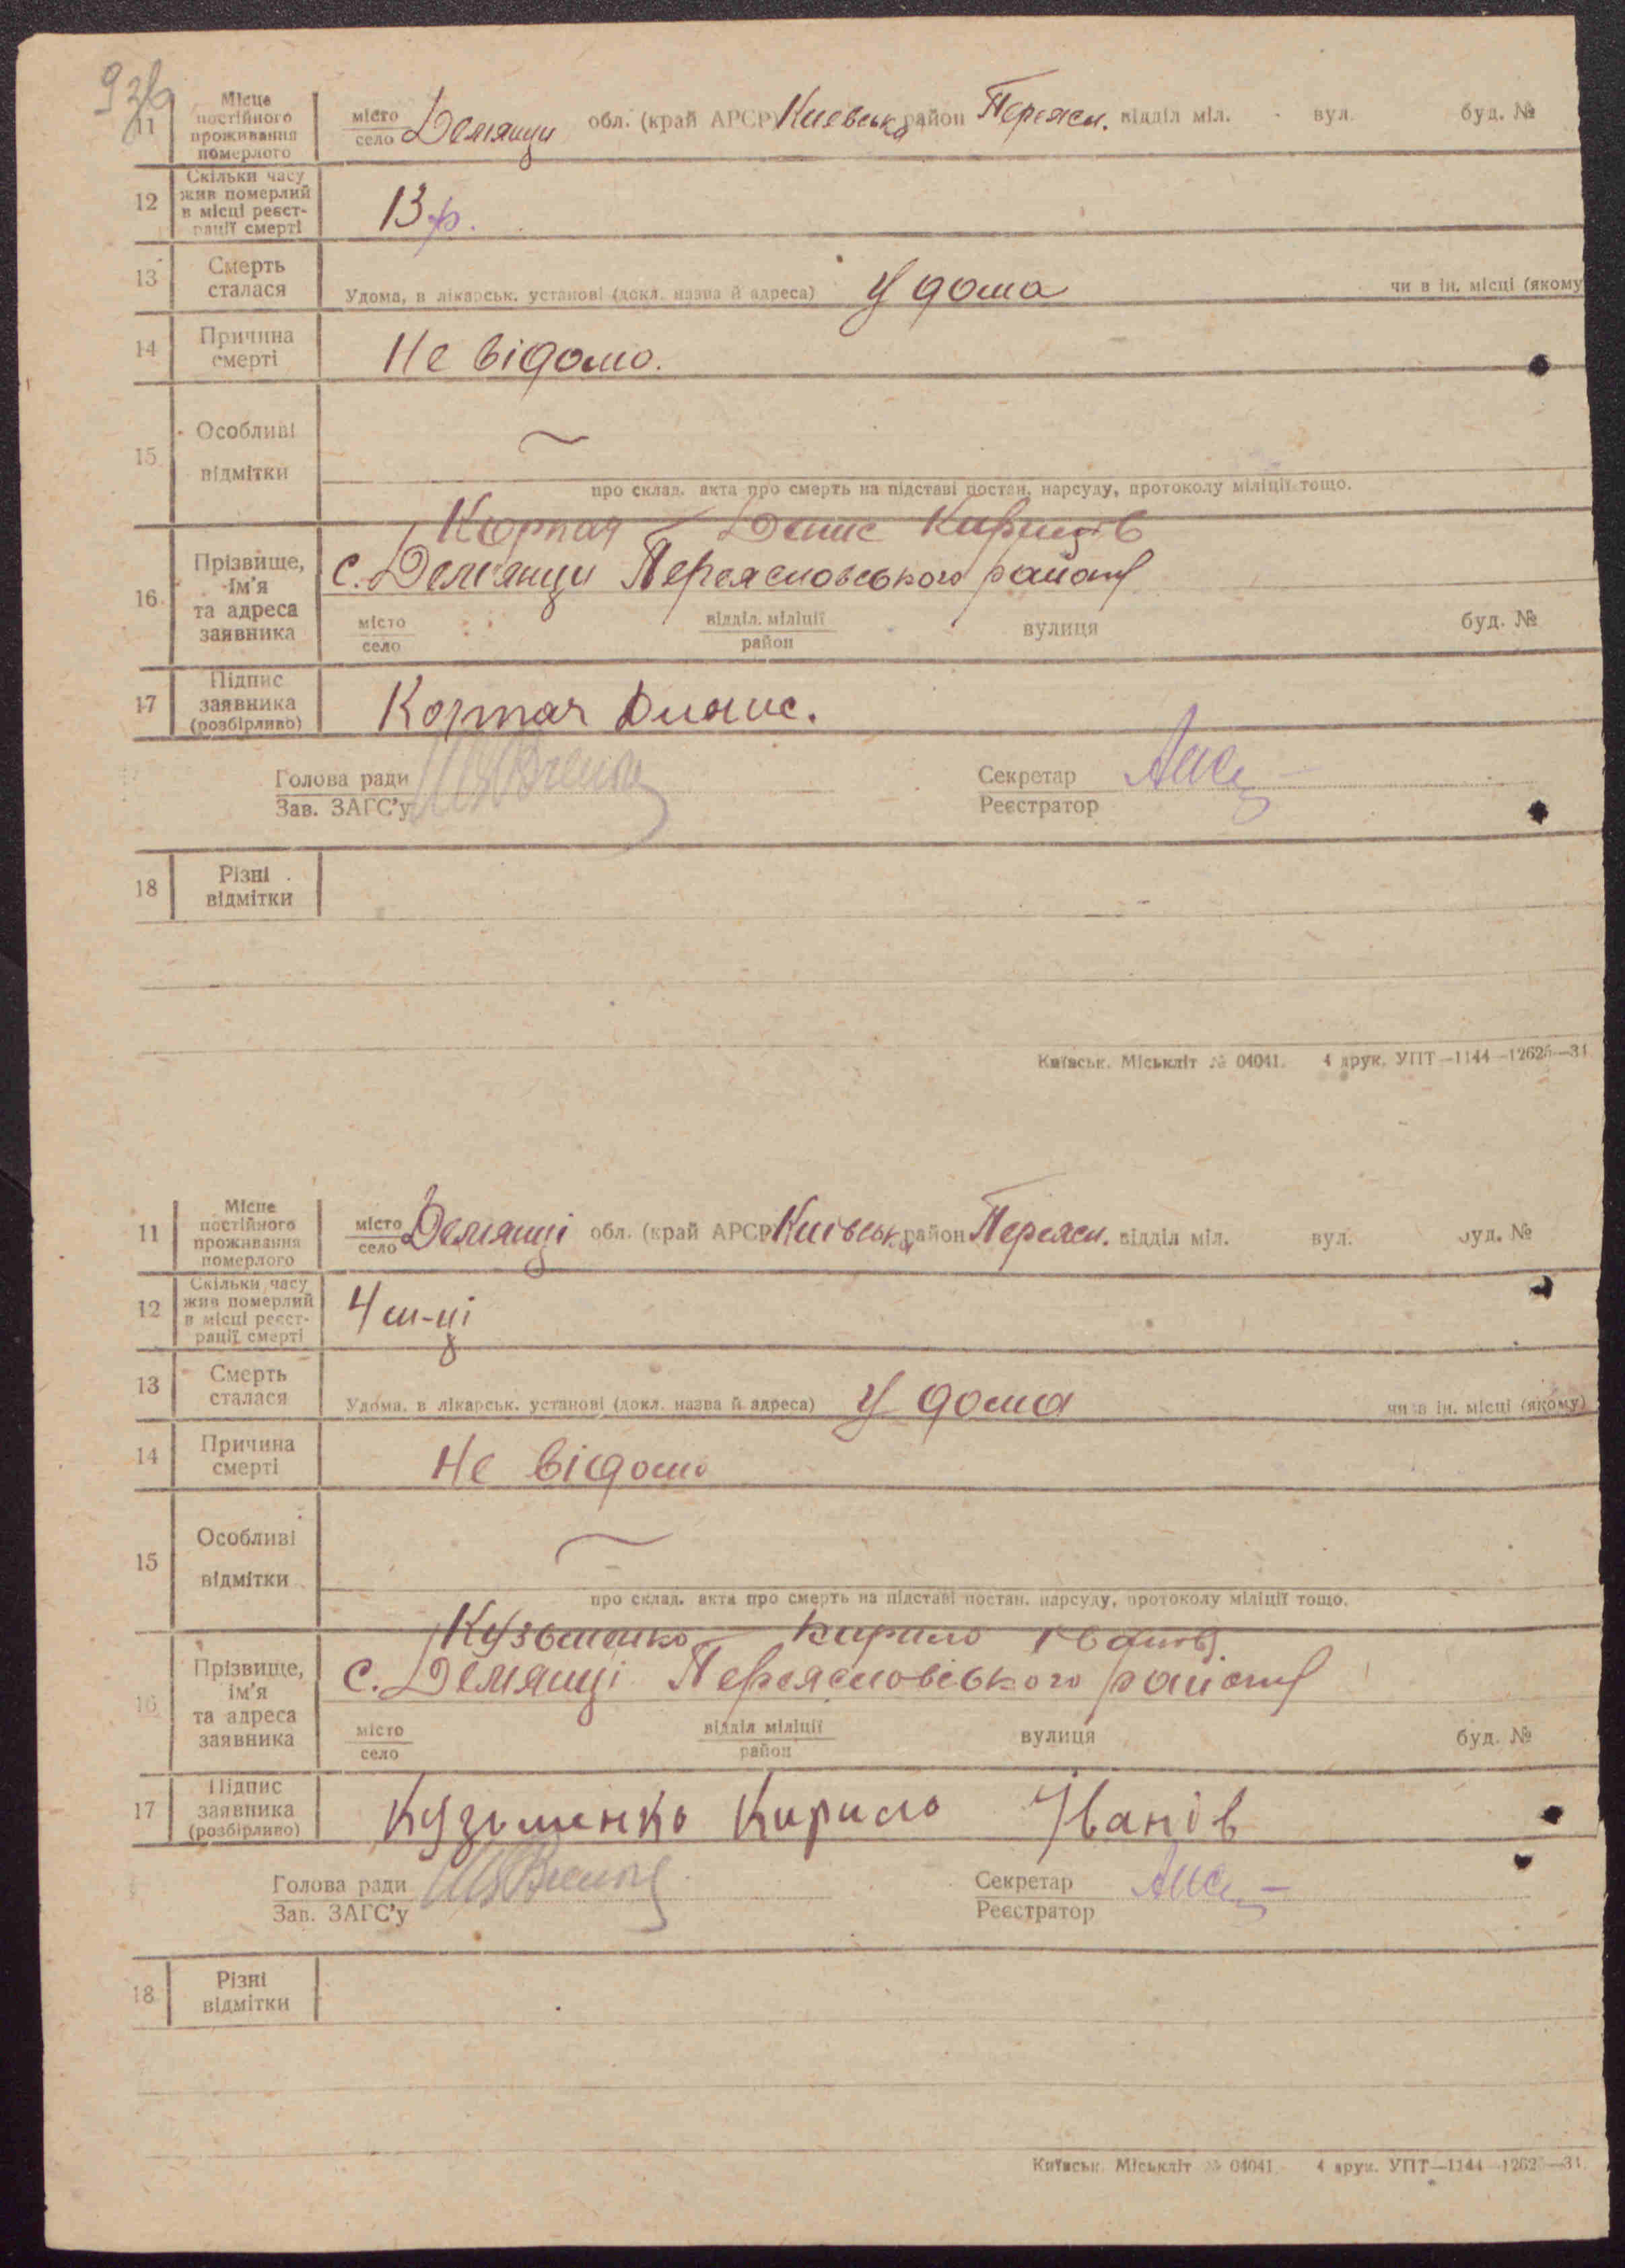 11 Місце постійного проживання померлого місто село Демянци обл. (край АРСР) Киевська район Переясл. відділ міл. вул. буд. №
12 Скільки часу жив померлий в місці реєстрації смерті 13 р.
13 Смерть сталася Удома, в лікарськ. установі (докл. назва й адреса) У дома чи в ін. місці (якому
14 Причина смерті Не відомо.
15 Особливі відмітки
про склад. акта про смерть на підставі постан. нарсуду, протоколу міліції тощо.
Денис
16 Прізвище, ім'я та адреса заявника с. Демянци Переясловського району
місто село відділ. міліції район вулиця буд. №
17 Підпис заявника (розбірливо)
Голова ради Секретар
Зав. ЗАГС'у Реєстратор
18 Різні відмітки
Київськ. Міськліт № 04041. 4 друк. УПТ—1144—12625—34
11 Місце постійного проживання померлого місто село Демянці обл. (край АРСР) Київська район Переясл. відділ міл. вул. буд. №
12 Скільки часу жив померлий в місці реєстрації смерті 4 м-ці
13 Смерть сталася Удома, в лікарськ. установі (докл. назва й адреса) У дома чи в ін. місці (якому)
14 Причина смерті Не відомо
15 Особливі відмітки
про склад. акта про смерть на підставі постан. нарсуду, протоколу міліції тощо.
Кузьменко Кирило Іванов
16 Прізвище, ім'я та адреса заявника с. Демянці Переясловського району
місто село відділ міліції район вулиця буд. №
17 Підпис заявника (розбірливо) Кузьменко Кирило Іванів
Голова ради Секретар
Зав. ЗАГС'у Реєстратор
18 Різні відмітки
Київськ. Міськліт № 04041. 4 друк. УПТ—1144—12625—34